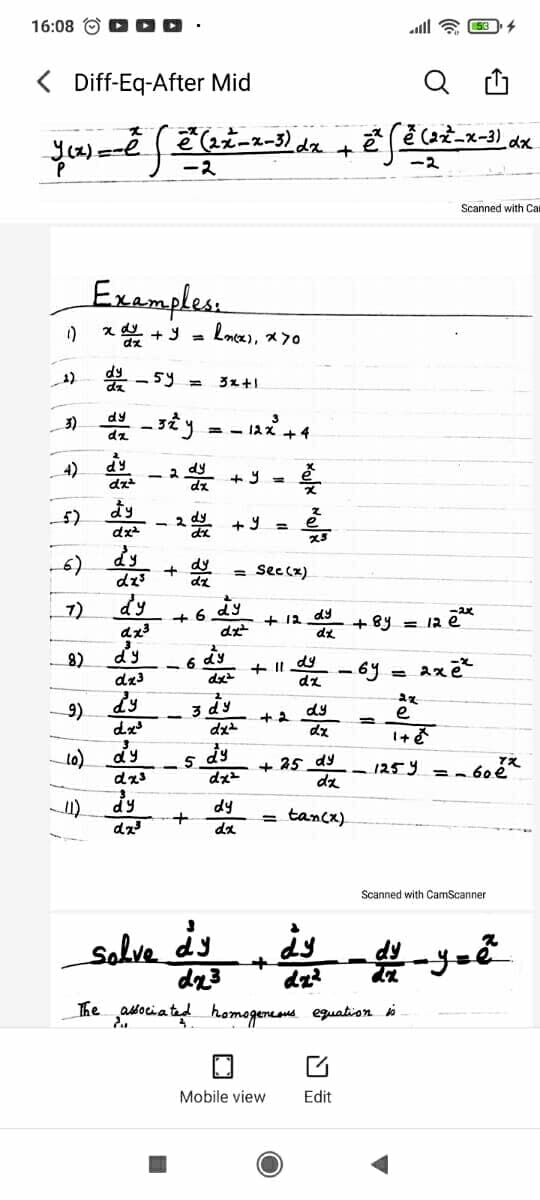 16:08
53
Diff-Eq-After Mid
y_p(x) = -e^x ∫ e^-x (2x²-x-3)/-2 dx + e^-x ∫ e^x (2x²-x-3)/-2 dx
Scanned with Ca
Examples:
1) x dy/dx + y = ln(x), x>0
2) dy/dx - 5y = 3x+1
3) dy/dx - 3x²y = -12x³+4
4) d²y/dx² - 2 dy/dx + y = e^x/x
5) d²y/dx² - 2 dy/dx + y = e^x/x⁵
6) d³y/dx³ + dy/dx = sec(x)
7) d³y/dx³ + 6 d²y/dx² + 12 dy/dx + 8y = 12 e^-2x
8) d³y/dx³ - 6 d²y/dx² + 11 dy/dx - 6y = 2x e^-x
9) d³y/dx³ - 3 d²y/dx² + 2 dy/dx = e^2x/(1+e^x)
10) d³y/dx³ - 5 d²y/dx² + 25 dy/dx - 125y = -60 e^7x
11) d³y/dx³ + dy/dx = tan(x)
Scanned with CamScanner
Solve d³y/dx³ + d²y/dx² - dy/dx - y = e^x
The associated homogeneous equation is
Mobile view
Edit